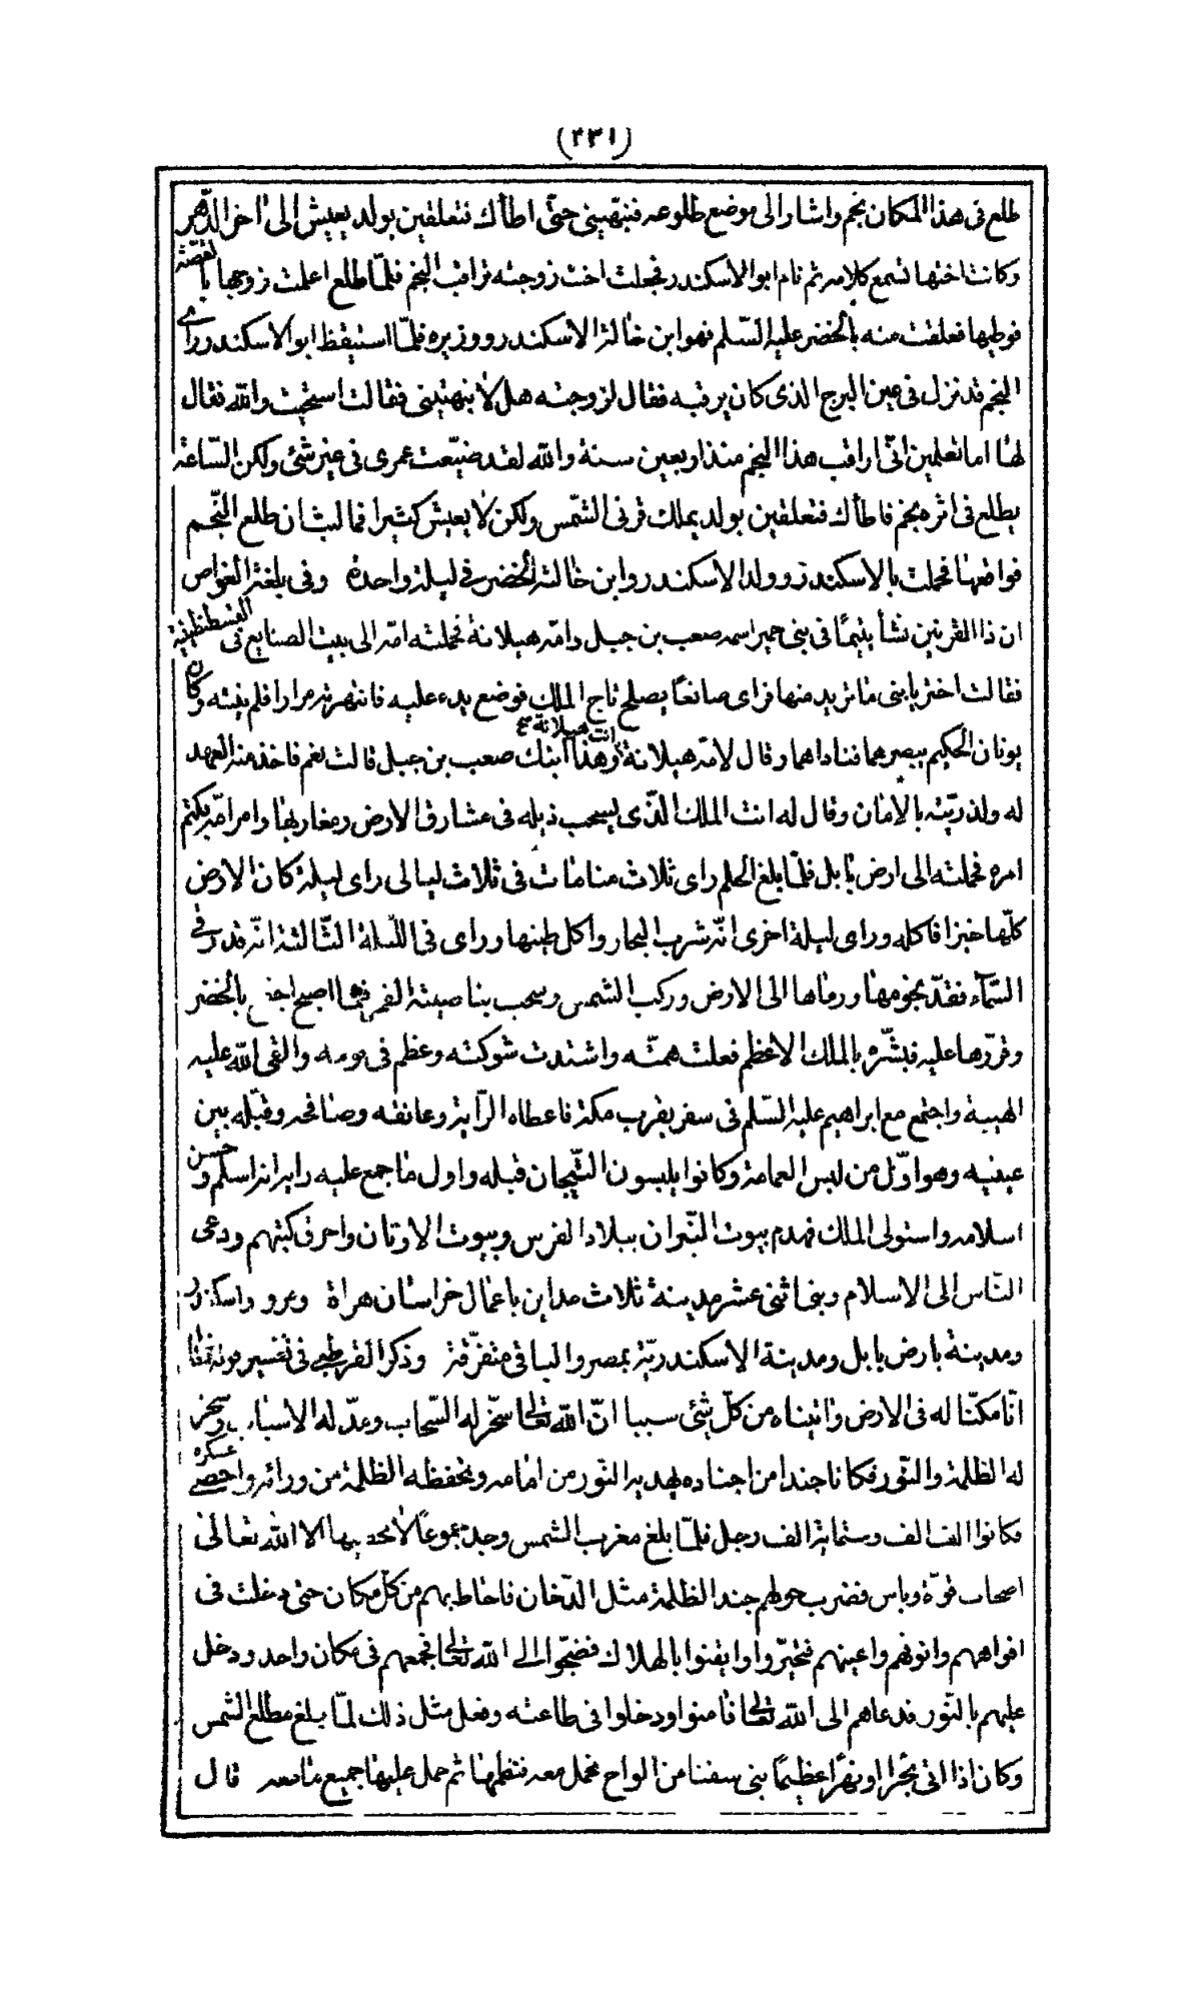 (٢٣١)
طلع فى هذا المكان نجم واشار الى موضع طلوعه فنبهينى حتى اطأك فتعلقين بولد يعيش الى اخر الدهر
وكانت اختها تسمع كلامه ثم نام ابو الاسكندر فجعلت اخت زوجته تراقب النجم فلما طلع اعلمت زوجها بالقصة
فوطيها فعلقت منه بالخضر عليه السلم فهو ابن خالة الاسكندر ووزيره فلما استيقظ ابو الاسكندر راى
النجم قد نزل فى عين البرج الذى كان يرقبه فقال لزوجته هل لا نبهتينى فقالت استحيت والله فقال
لها اما تعلمين انى اراقب هذا النجم منذ اربعين سنة والله لقد ضيعت عمرى فى غير شئ ولكن الساعة
يطلع فى اثره نجم فاطأك فتعلقين بولد يملك قرنى الشمس ولكن لا يعيش كثيرا فما لبث ان طلع النجم
فواقعها فحملت بالاسكندر وولد الاسكندر وابن خالته الخضر فى ليلة واحدة وفى بلغة الغواص
ان ذا القرنين نشأ يتيما فى بنى حمير اسمه صعب بن جبل وامه هيلانة فحملته امه الى بيت الصنايع فى القسطنطينية
فقالت اختر يا بنى ما تريد منها فراى صانعا يصلح تاج الملك فوضع يده عليه فانتهرته مرارا فلم ينته وكان
يونان الحكيم يبصرهما فناداهما وقال لامه هيلانة انت هيلانة صح وهذا ابنك صعب بن جبل قالت نعم فاخذ منه العهد
له ولذريته بالامان وقال له انت الملك الذى يسحب ذيله فى مشارق الارض ومغاربها وامر امه بكتم
امره فحملته الى ارض بابل فلما بلغ الحلم راى ثلاث منامات فى ثلاث ليالى راى ليلة كان الارض
كلها خبزا فاكله وراى ليلة اخرى انه شرب البحار واكل طينها وراى فى الليلة الثالثة انه قد رقى
السماء فقد نجومها ورماها الى الارض وركب الشمس وسحب بناصية القمر فلما اصبح اجتمع بالخضر
وقررها عليه فبشره بالملك الاعظم فعلت همته واشتدت شوكته وعظم فى قومه والقى الله عليه
الهيبة واجتمع مع ابراهيم عليه السلم فى سفر بقرب مكة فاعطاه الراية وعانقه وصافحه وقبله بين
عينيه وهو اول من لبس العمامة وكانوا يلبسون التيجان قبله واول ما جمع عليه رايه انه اسلم وحسن
اسلامه واستولى الملك فهدم بيوت النيران ببلاد الفرس وبيوت الاوثان واحرق كتبهم ودعى
الناس الى الاسلام وبنى اثنى عشر مدينة ثلاث مداين باعمال خراسان هراة ومرو
ومدينة بارض بابل ومدينة الاسكندرية بمصر والباقى متفرقة وذكر القرطبى فى تفسير قوله تعالى
انا مكنا له فى الارض واتيناه من كل شئ سببا ان الله تعالى سخر له السحاب ومد له الاسباب وسخر
له الظلمة والنور فكانا جندا من اجناده يهديه النور من امامه وتحفظه الظلمة من ورائه واحصى عسكره
فكانوا الف الف وستماية الف رجل فلما بلغ مغرب الشمس وجد جموعا لا يحصيها الا الله تعالى
اصحاب قوة وباس فضرب حولهم جند الظلمة مثل الدخان فاحاط بهم من كل مكان حتى دخلت فى
افواههم وانوفهم واعينهم فتحيروا وايقنوا بالهلاك فضجوا الى الله تعالى فجمعهم فى مكان واحد ودخل
عليهم بالنور فدعاهم الى الله تعالى فامنوا ودخلوا فى طاعته وفعل مثل ذلك لما بلغ مطلع الشمس
وكان اذا اتى بحرا او نهرا عظيما بنى سفنا من الواح تحمل معه فنظمها ثم حمل عليها جميع ما معه قال